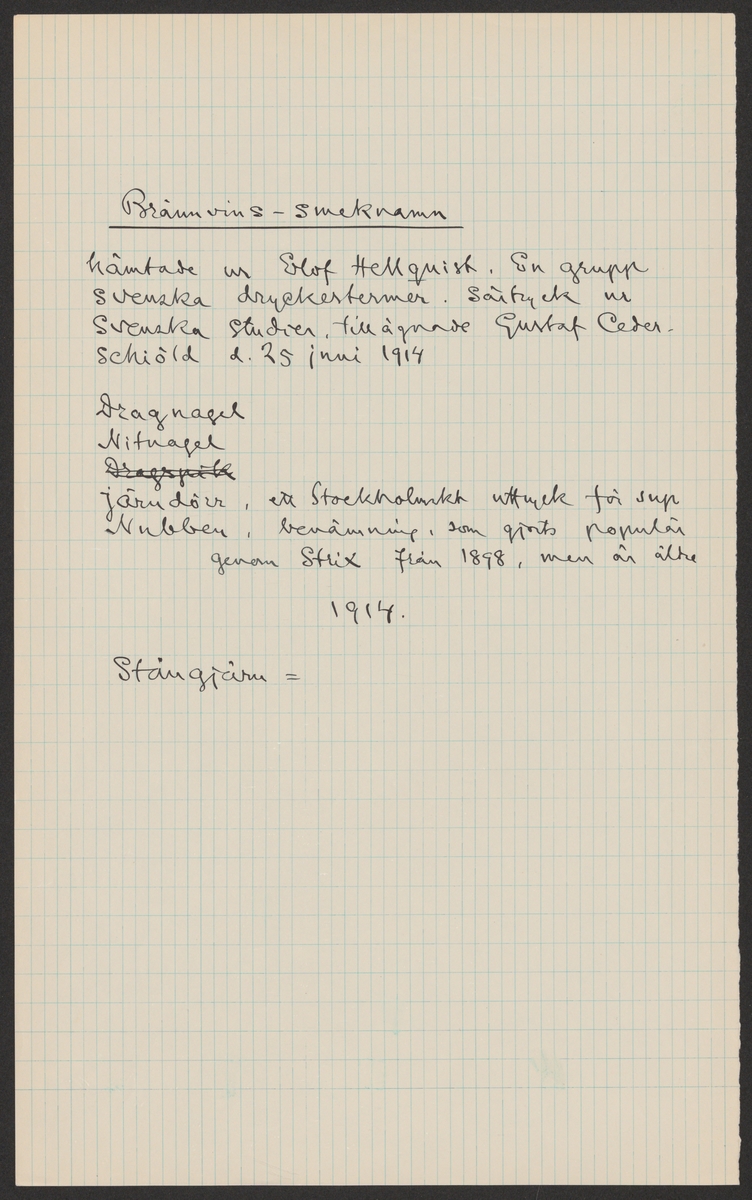 Brännvins - smeknamn
hämtade ur Elof Hellquist. En grupp
svenska dryckestermer. Särtryck ur
Svenska Studier, tillägnade Gustaf Ceder-
schiöld d. 25 juni 1914
Dragnagel
Nitnagel
Dragspik
järndörr, ett Stockholmskt uttryck för sup
Nubben, benämning, som gjorts populär
genom Strix från 1898, men är äldre
1914.
Stångjärn =